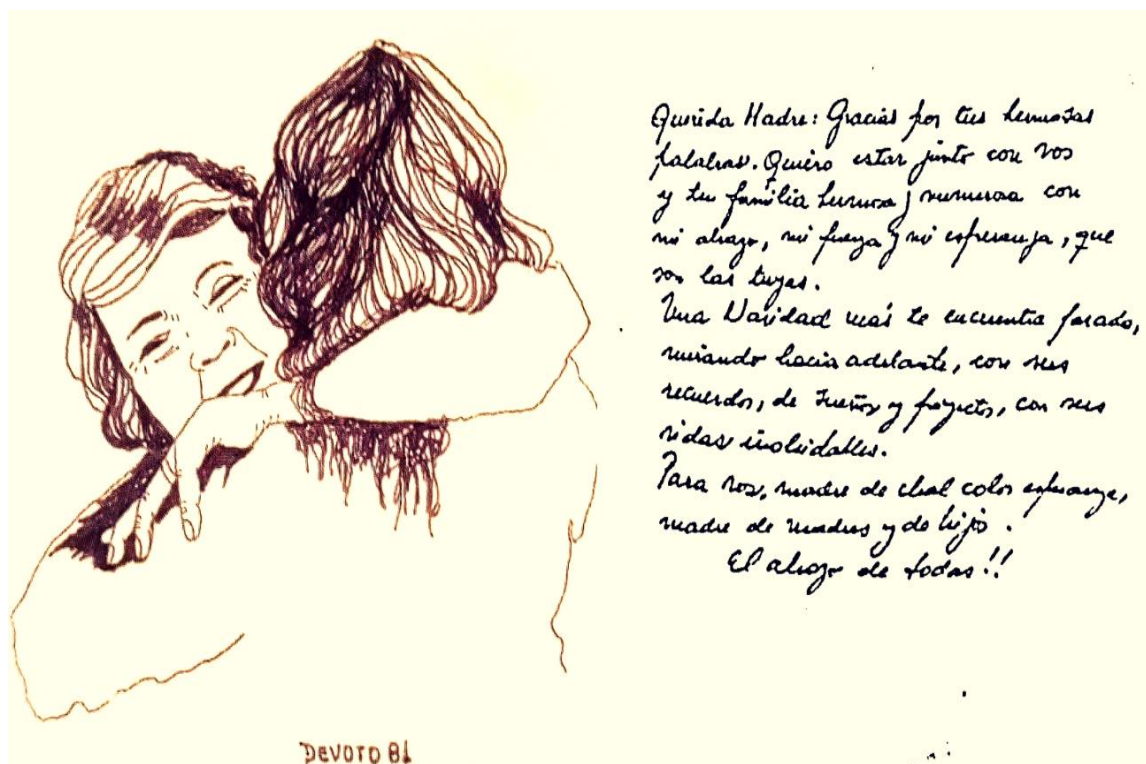 Querida Madre: Gracias por tus hermosas
palabras. Quiero estar junto con vos
y tu familia hermosa y numerosa con
mi abrazo, mi fuerza y mi esperanza, que
son las tuyas.
Una Navidad más te encuentra parada,
mirando hacia adelante, con sus
recuerdos, de sueños y proyectos, con sus
vidas inolvidables.
Para vos, madre de chal color esperanza,
madre de madres y de hijos.
El abrazo de todas!!
DEVOTO 81